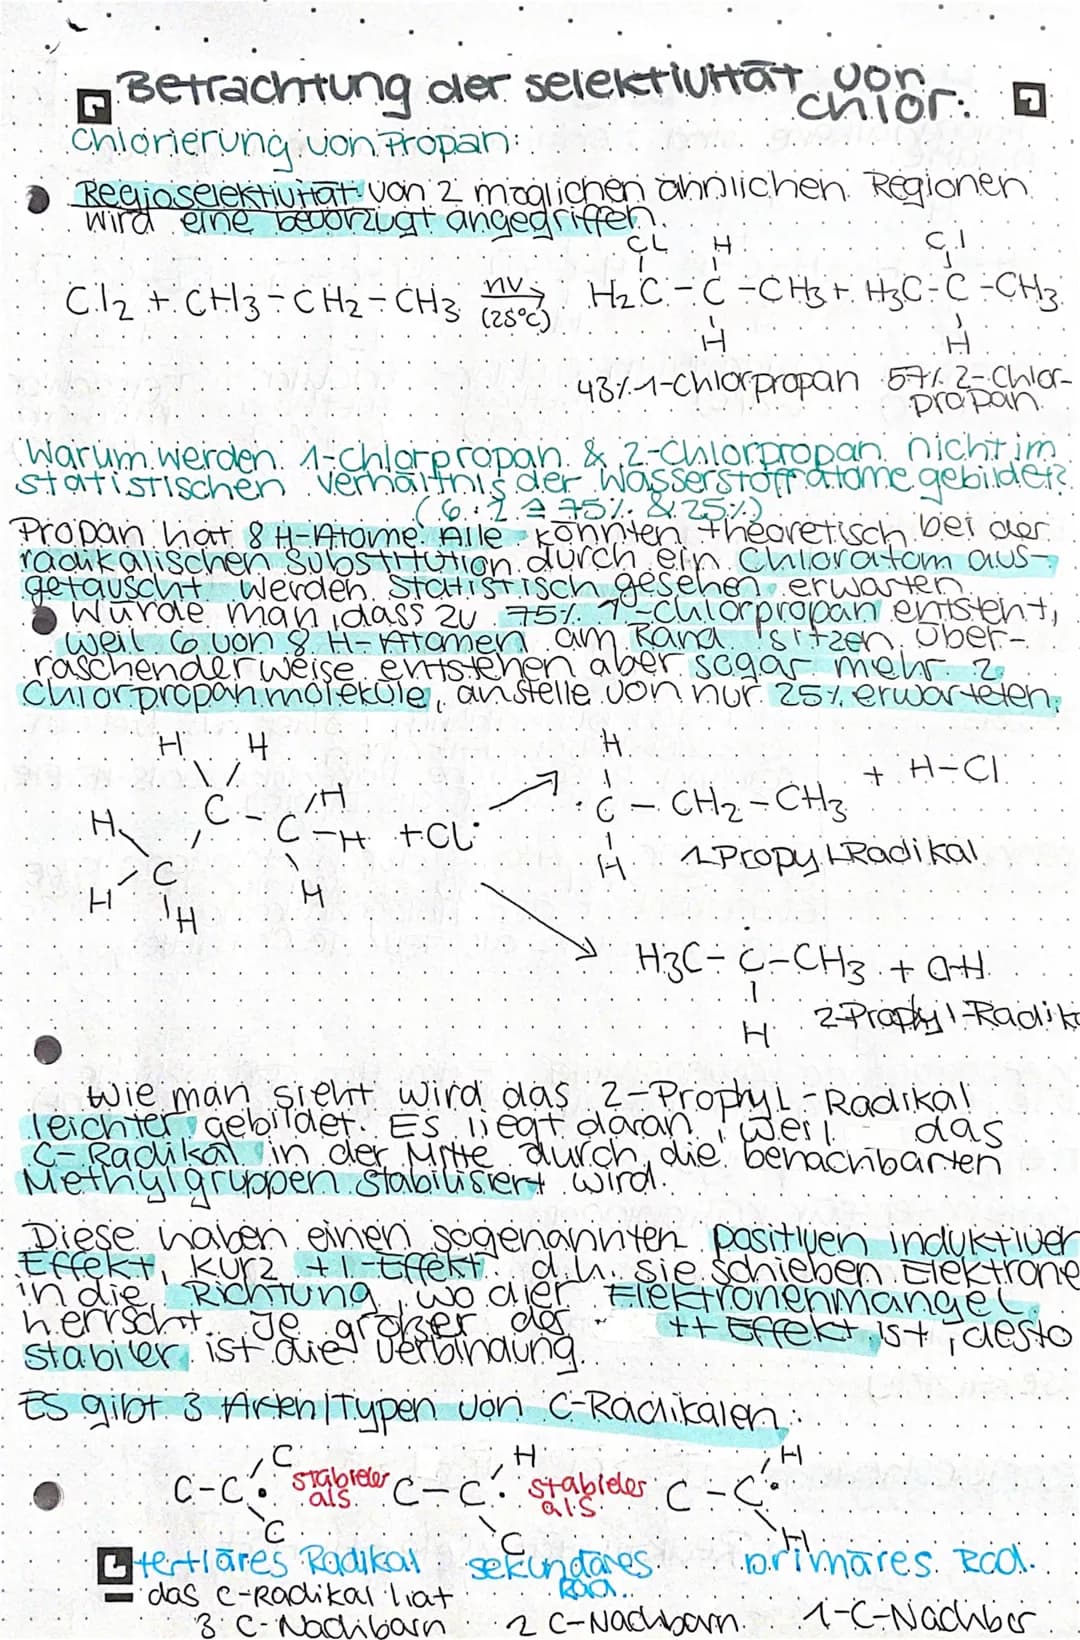 Betrachtung der selektivität von
chlor:
Chlorierung von Propan:
Regioselektivität: von 2 möglichen ähnlichen Regionen
wird eine bevorzugt angegriffen.
CL H Cl
Cl2 + CH3-CH2-CH3 hv H2C-C-CH3 + H3C-C-CH3
(25°C)
H H
43% 1-Chlorpropan 57% 2-Chlor-
propan
Warum werden 1-chlorpropan & 2-Chlorpropan nicht im
statistischen Verhältnis der Wasserstoffatome gebildet?
(6:2 ≙ 75% & 25%)
Propan hat 8 H-Atome. Alle könnten theoretisch bei der
radikalischen Substitution durch ein Chloratom aus-
getauscht werden. Statistisch gesehen erwarten
würde man, dass zu 75% 1-chlorpropan entsteht,
weil 6 von 8 H-Atomen am Rand sitzen. Über-
raschenderweise entstehen aber sogar mehr 2
Chlorpropanmoleküle, anstelle von nur 25% erwarteten.
H H H
+ H-Cl
C H
H C - C - H + Cl· ·C - CH2 - CH3
H 1 Propyl-Radikal
H C H
H
H3C - Ċ - CH3 + Cl-H
H 2-Prophyl-Radik
Wie man sieht wird das 2-Prophyl-Radikal
leichter gebildet. Es liegt daran, weil das
C-Radikal in der Mitte durch die benachbarten
Methylgruppen stabilisiert wird.
Diese haben einen sogenannten positiven induktiver
Effekt, kurz +I-Effekt. d.h. sie schieben Elektrone
in die Richtung, wo der Elektronenmangel
herrscht. Je größer der ++ Effekt ist, desto
stabiler ist die Verbindung.
Es gibt 3 Arten/Typen von C-Radikalen:
C H H
C-C· stabieler als C-C· stabieler als C-C·
C C H
tertiäres Radikal sekundäres Rad. primäres Rad.
das C-Radikal hat
3 C-Nachbarn 2 C-Nachbarn 1-C-Nachbar